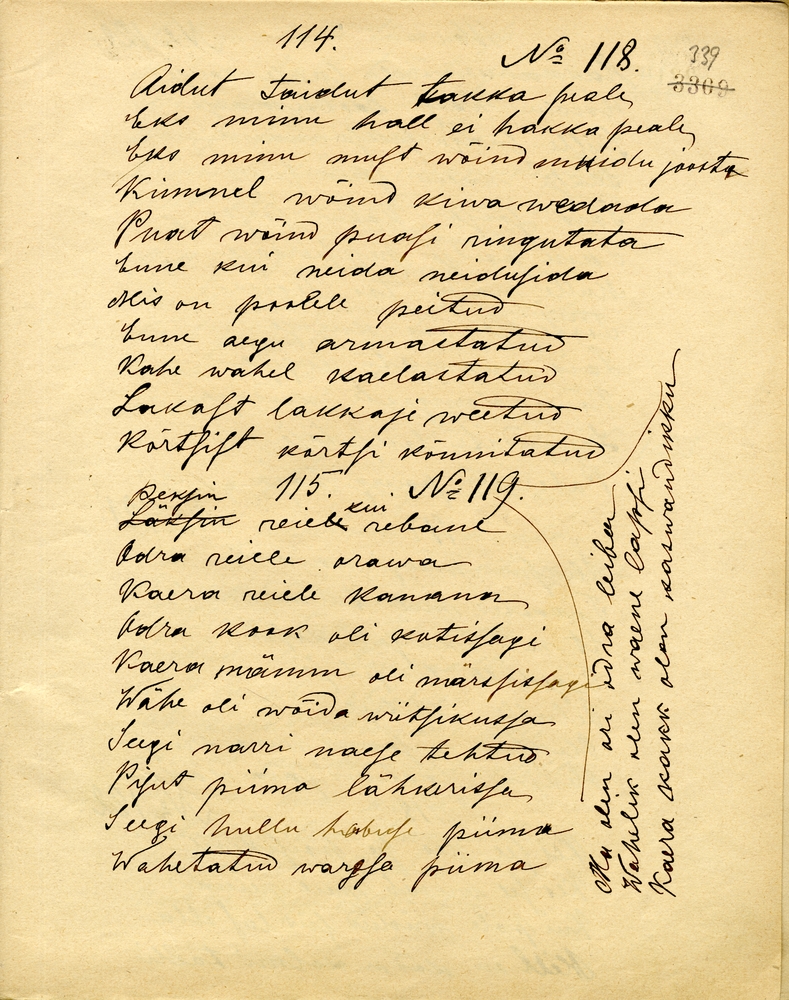 114.
No 118.
339
3369
Aidut taidut takka peale
Eks minu hall ei hakka peale
Eks minu must wõind muidu joosta
Kimmel wõind kiwa wedada
Puat wõind puasi ringutata
Enne kui neida neidusida
Mis on poolele peitud
Enne aegu armastatud
Kahe wahel kaelastatud
Lakast lakkaje weetud
Kõrtsist kõrtsi kõnnitatud
115.
No 119.
Peksin
Läksin reiele kui rebane
Odra reiele orawa
Kaera reiele kanana
Odra kook oli kotissagi
Kaera mämm oli märssissagi
Wähe oli wõida wütsikussa
Seegi narri naese tehtud
Pisut piima lähkerissa
Seegi hullu hobuse piima
Wahetatud warssa piima
Ma olen ori odra leiba
Wahelik olen waene lapsi
Kaera kakk olen kaswandikku